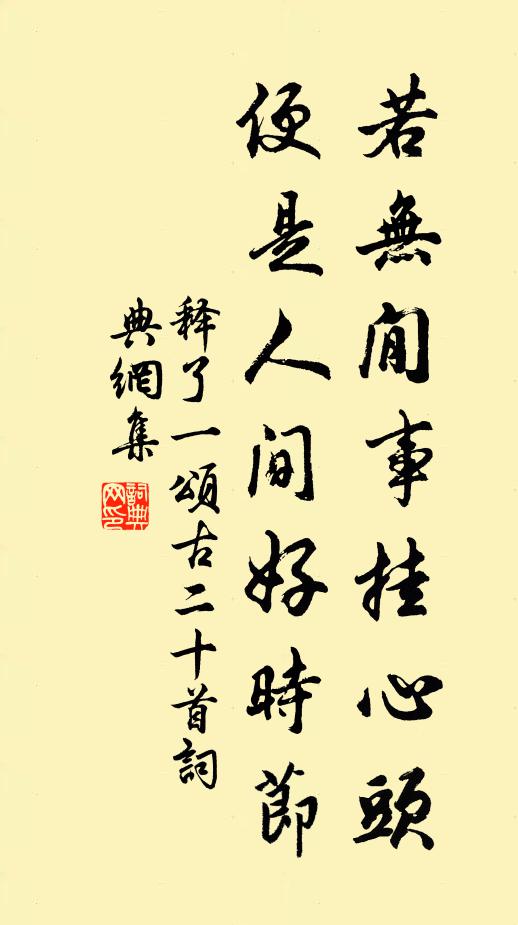 若無閒事挂心頭
便是人间好時節
释了一頌古二十首詞
典網集
詞典
网印